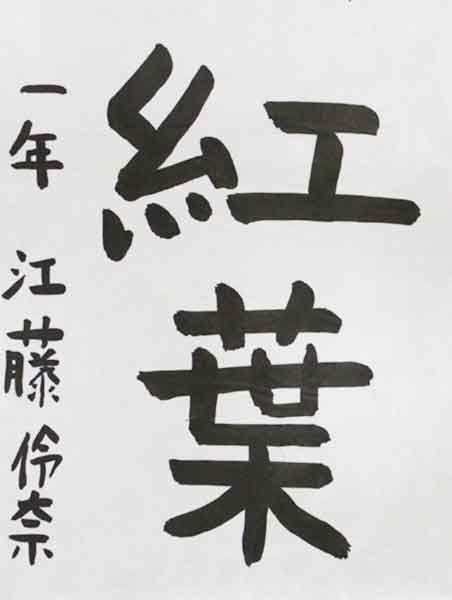 紅葉
一年 江藤伶奈